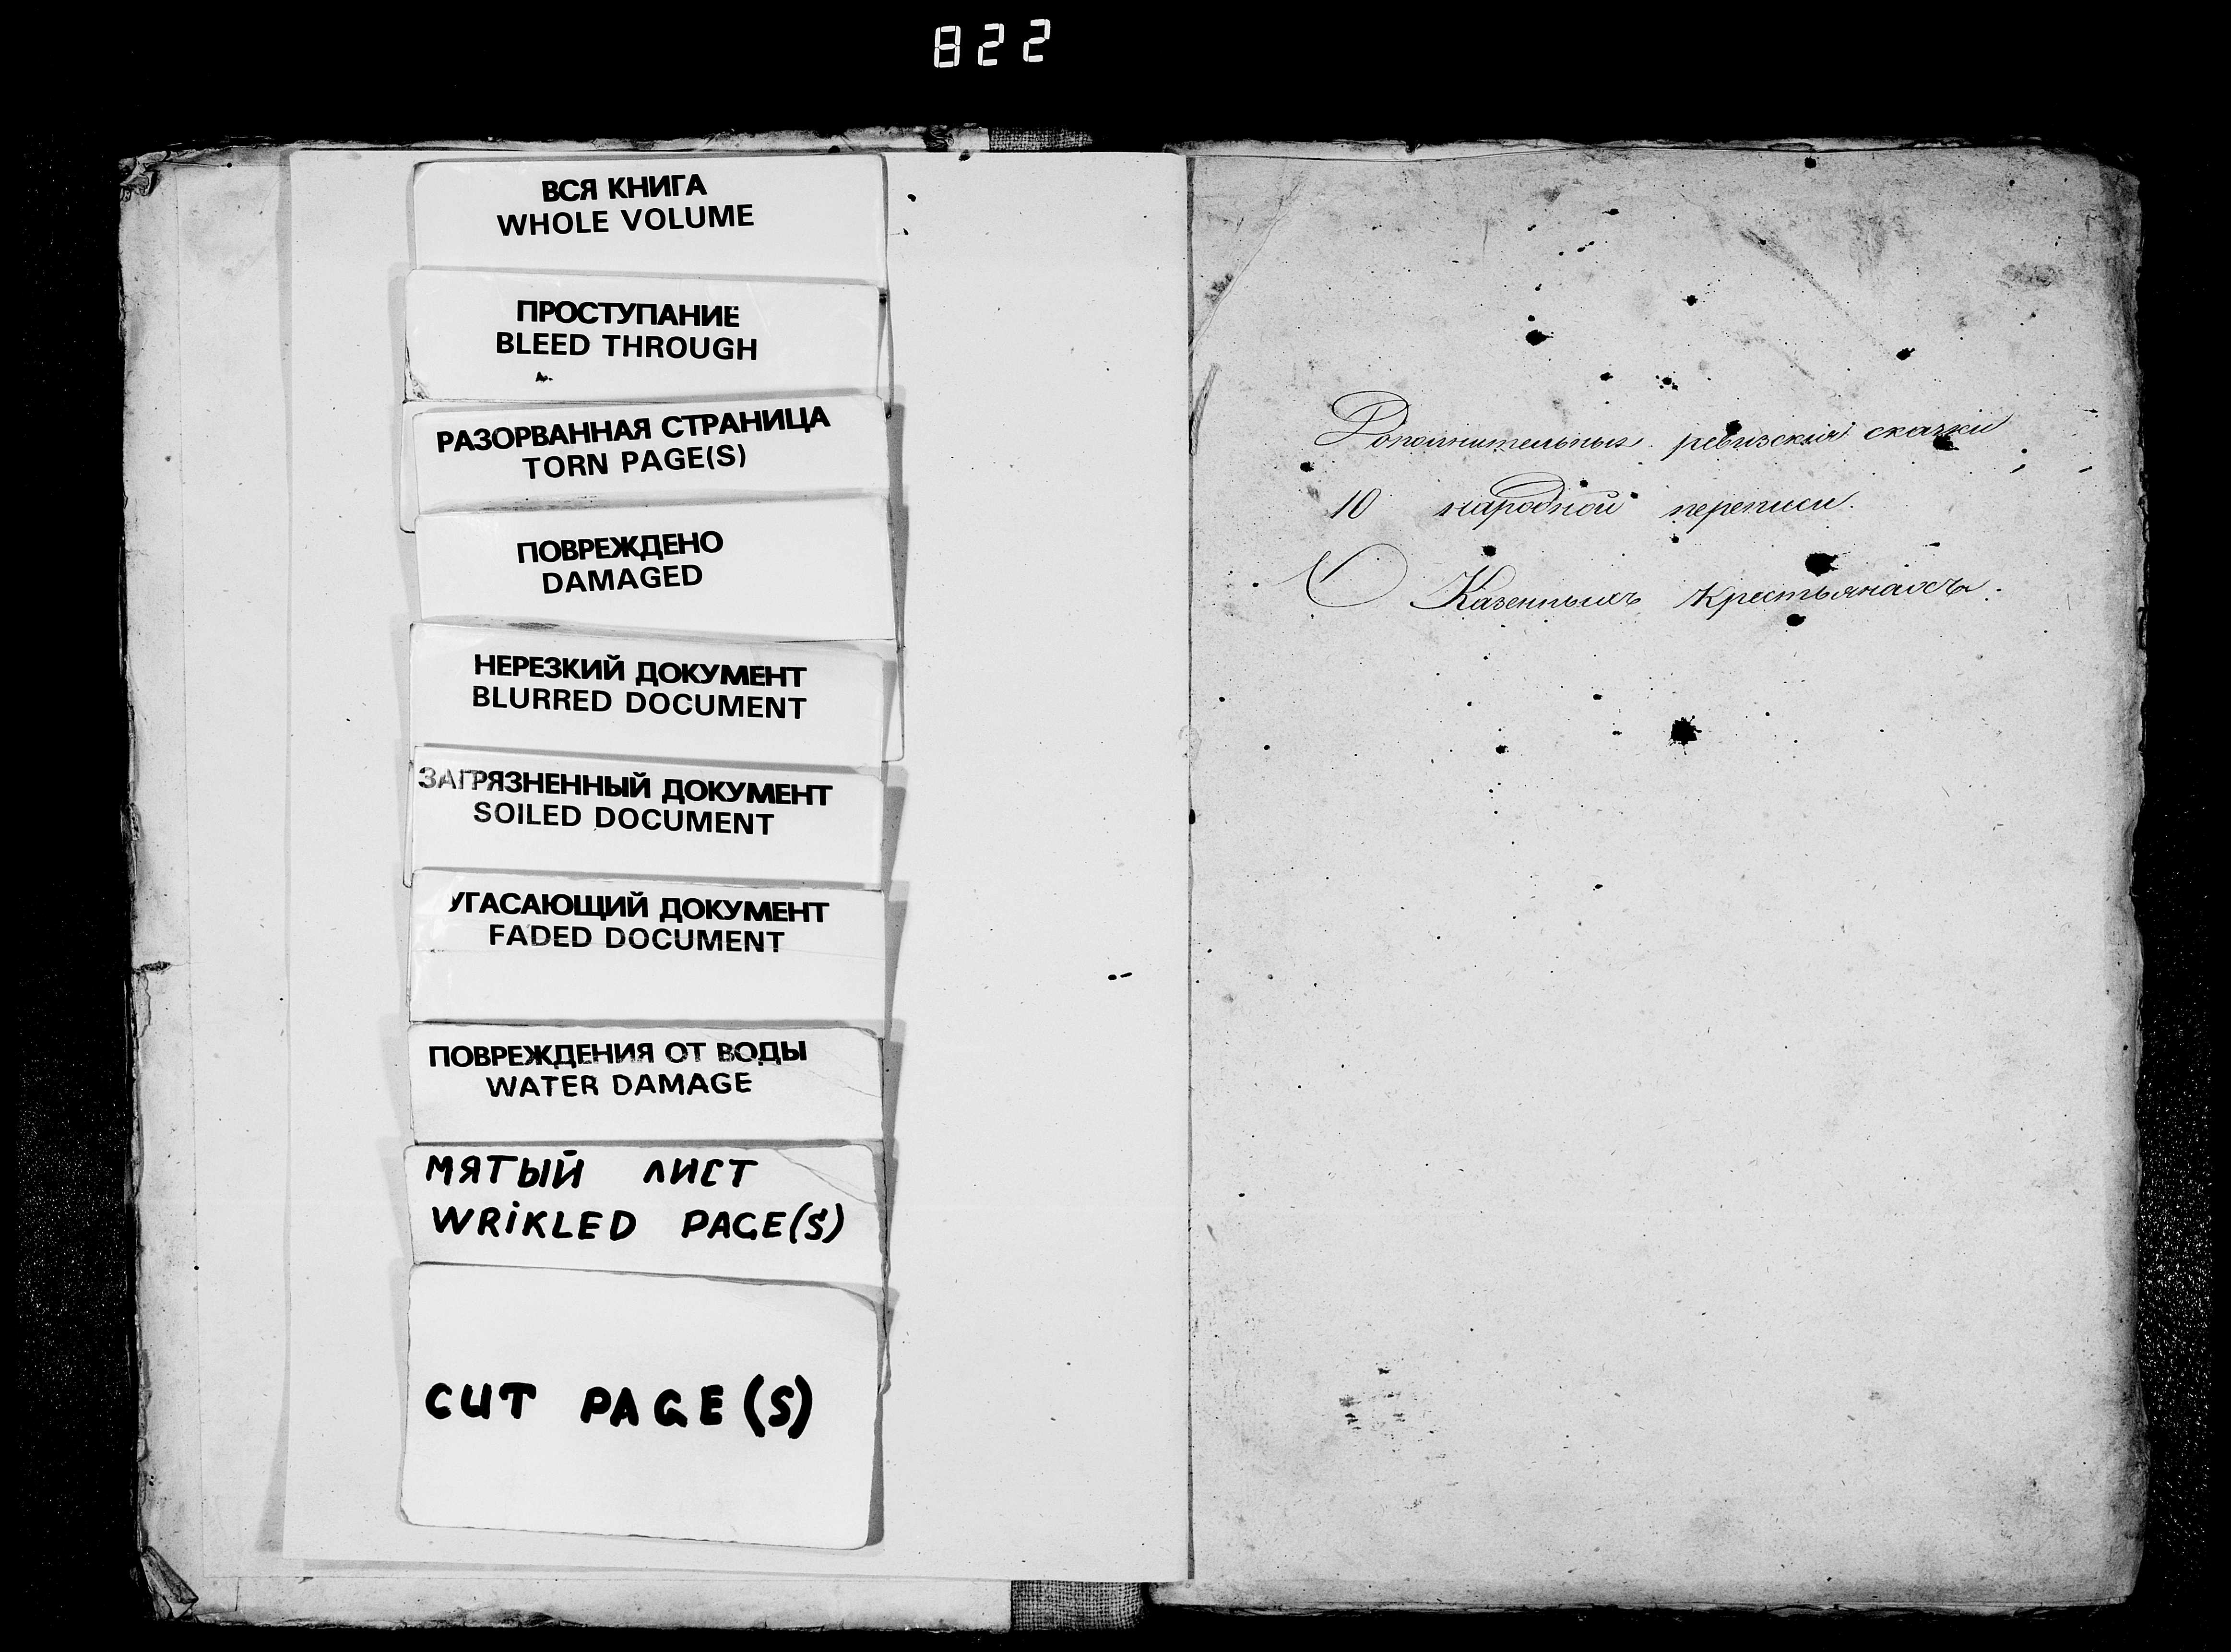 822
ВСЯ КНИГА
WHOLE VOLUME
ПРОСТУПАНИЕ
BLEED THROUGH
РАЗОРВАННАЯ СТРАНИЦА
TORN PAGE(S)
ПОВРЕЖДЕНО
DAMAGED
НЕРЕЗКИЙ ДОКУМЕНТ
BLURRED DOCUMENT
ЗАГРЯЗНЕННЫЙ ДОКУМЕНТ
SOILED DOCUMENT
УГАСАЮЩИЙ ДОКУМЕНТ
FADED DOCUMENT
ПОВРЕЖДЕНИЯ ОТ ВОДЫ
WATER DAMAGE
МЯТЫЙ ЛИСТ
WRiKLED PAGE(S)
CUT PAGE(S)
Дополнительныя ревизскія сказки
10 народной переписи.
О Казенныхъ Крестьянахъ.